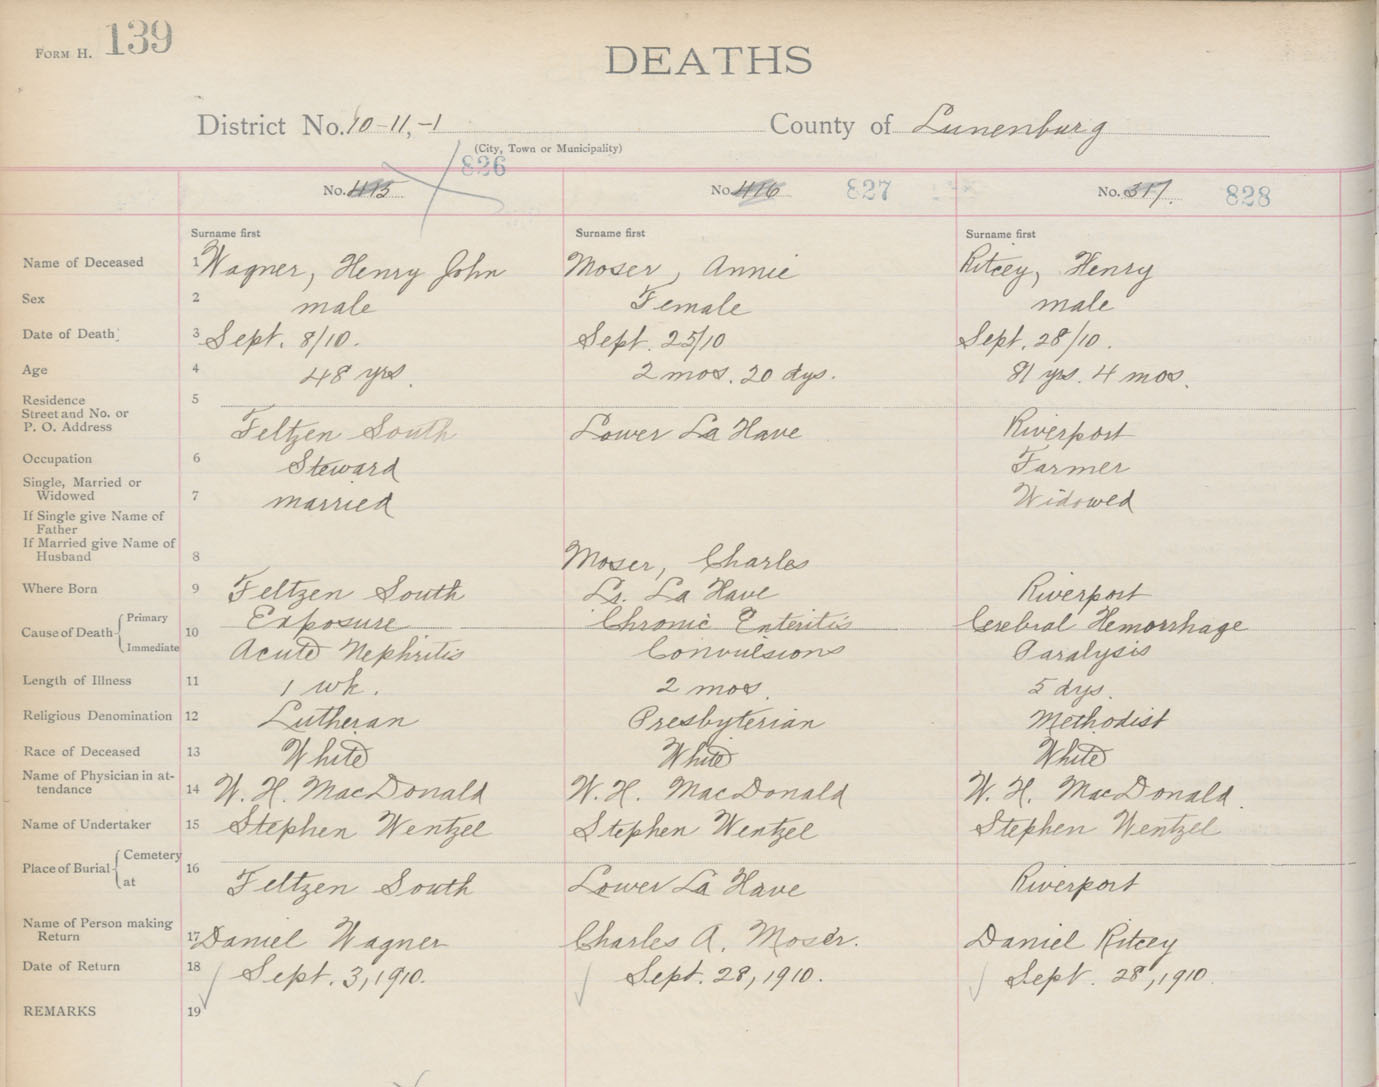 FORM H. 139
DEATHS
District No. 10-11,-1 County of Lunenburg
(City, Town or Municipality)
826
No. 415 No. 416 827 No. 317. 828
Surname first Surname first Surname first
Name of Deceased 1 Wagner, Henry John Moser, Annie Ritcey, Henry
Sex 2 male Female male
Date of Death 3 Sept. 8/10. Sept. 25/10 Sept. 28/10.
Age 4 48 yrs. 2 mos. 20 dys. 81 yrs. 4 mos.
Residence 5
Street and No. or
P. O. Address Feltzen South Lower La Have Riverport
Occupation 6 Steward Farmer
Single, Married or
Widowed 7 married Widowed
If Single give Name of
Father
If Married give Name of
Husband 8 Moser, Charles
Where Born 9 Feltzen South Lr. La Have Riverport
Cause of Death 10 Primary Exposure Chronic Enteritis Cerebral Hemorrhage
Immediate Acute Nephritis Convulsions Paralysis
Length of Illness 11 1 wk. 2 mos. 5 dys.
Religious Denomination 12 Lutheran Presbyterian Methodist
Race of Deceased 13 White White White
Name of Physician in at-
tendance 14 W. H. MacDonald W. H. MacDonald W. H. MacDonald.
Name of Undertaker 15 Stephen Wentzel Stephen Wentzel Stephen Wentzel
Place of Burial 16 Cemetery
at Feltzen South Lower La Have Riverport
Name of Person making
Return 17 Daniel Wagner Charles A. Moser. Daniel Ritcey
Date of Return 18 Sept. 3, 1910. Sept. 28, 1910. Sept. 28, 1910
REMARKS 19